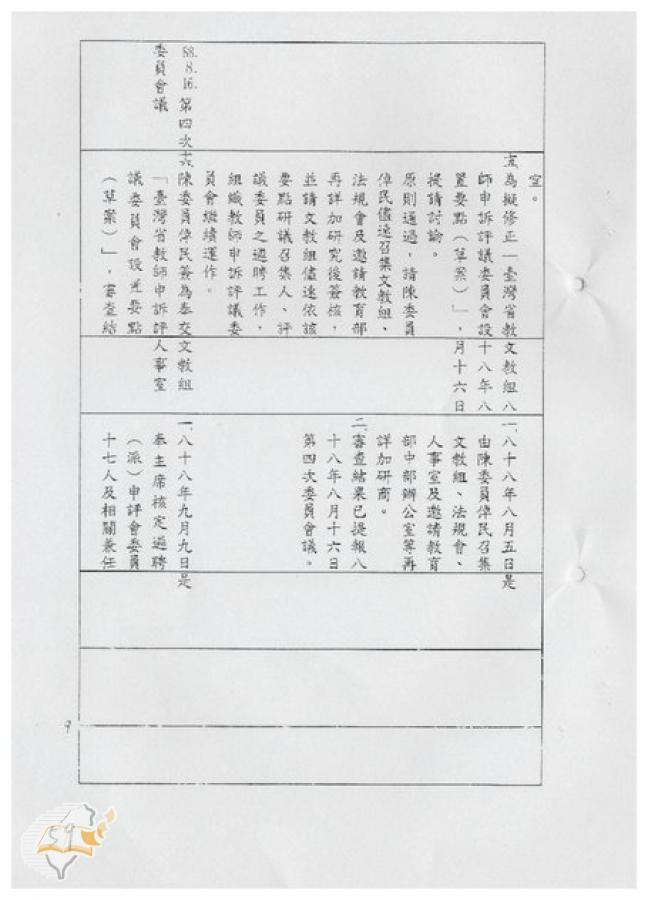 室。
五、為擬修正「臺灣省教
師申訴評議委員會設
置要點(草案)」,
提請討論。
原則通過,請陳委員
倬民儘速召集文教組、
法規會及邀請教育部
再詳加研究後簽核,
並請文教組儘速依該
要點研議召集人、評
議委員之遴聘工作,
組織教師申訴評議委
員會繼續運作。
文教組八
十八年八
月十六日
一、八十八年八月五日是
由陳委員倬民召集
文教組、法規會、
人事室及邀請教育
部中部辦公室等再
詳加研商。
二、審查結果已提報八
十八年八月十六日
第四次委員會議。
88.8.16.第四次
委員會議
六、陳委員倬民簽為奉交
「臺灣省教師申訴評
議委員會設置要點
(草案)」,審查結
文教組
人事室
一、八十八年九月九日是
奉主席核定遴聘
(派)申評會委員
十七人及相關兼任
9
59